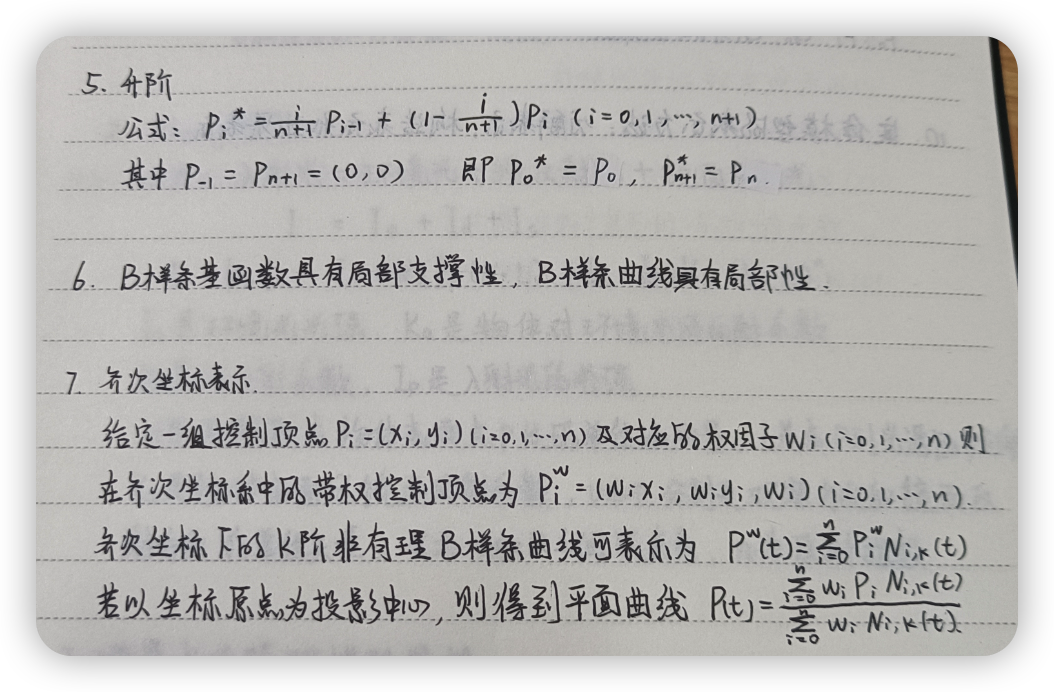 5. 升阶
公式: Pᵢ* = i/(n+1) Pᵢ₋₁ + (1 - i/(n+1)) Pᵢ (i=0,1,…,n+1)
其中 P₋₁ = Pₙ₊₁ = (0,0) 即 P₀* = P₀, Pₙ₊₁* = Pₙ.
6. B样条基函数具有局部支撑性, B样条曲线具有局部性.
7. 齐次坐标表示.
给定一组控制顶点 Pᵢ=(xᵢ,yᵢ)(i=0,1,…,n) 及对应的权因子 wᵢ(i=0,1,…,n) 则
在齐次坐标系中的带权控制顶点为 Pᵢʷ=(wᵢxᵢ, wᵢyᵢ, wᵢ)(i=0,1,…,n).
齐次坐标下的 k阶非有理B样条曲线可表示为 Pʷ(t)=∑ⁿᵢ₌₀ Pᵢʷ Nᵢ,ₖ(t)
若以坐标原点为投影中心, 则得到平面曲线 P(t)= ∑ⁿᵢ₌₀ wᵢ Pᵢ Nᵢ,ₖ(t) / ∑ⁿᵢ₌₀ wᵢ Nᵢ,ₖ(t).